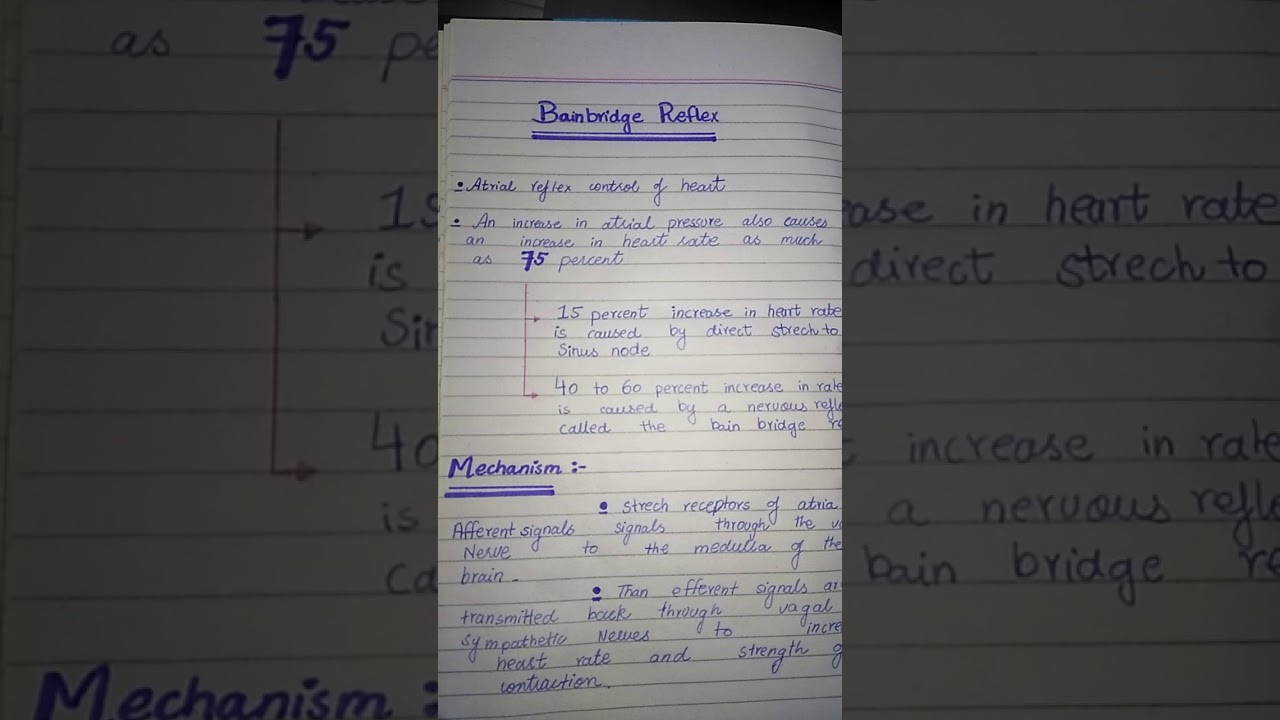 Bainbridge Reflex
Atrial reflex control of heart
An increase in atrial pressure also causes
an increase in heart rate as much
as 75 percent
15 percent increase in heart rate
is caused by direct strech to
Sinus node
40 to 60 percent increase in rate
is caused by a nervous refle
called the bain bridge re
Mechanism :-
strech receptors of atria
Afferent signals signals through the va
Nerve to the medulla of the
brain.
Than efferent signals ar
transmitted back through vagal
sympathetic Nerves to incre
heart rate and strength o
contraction.